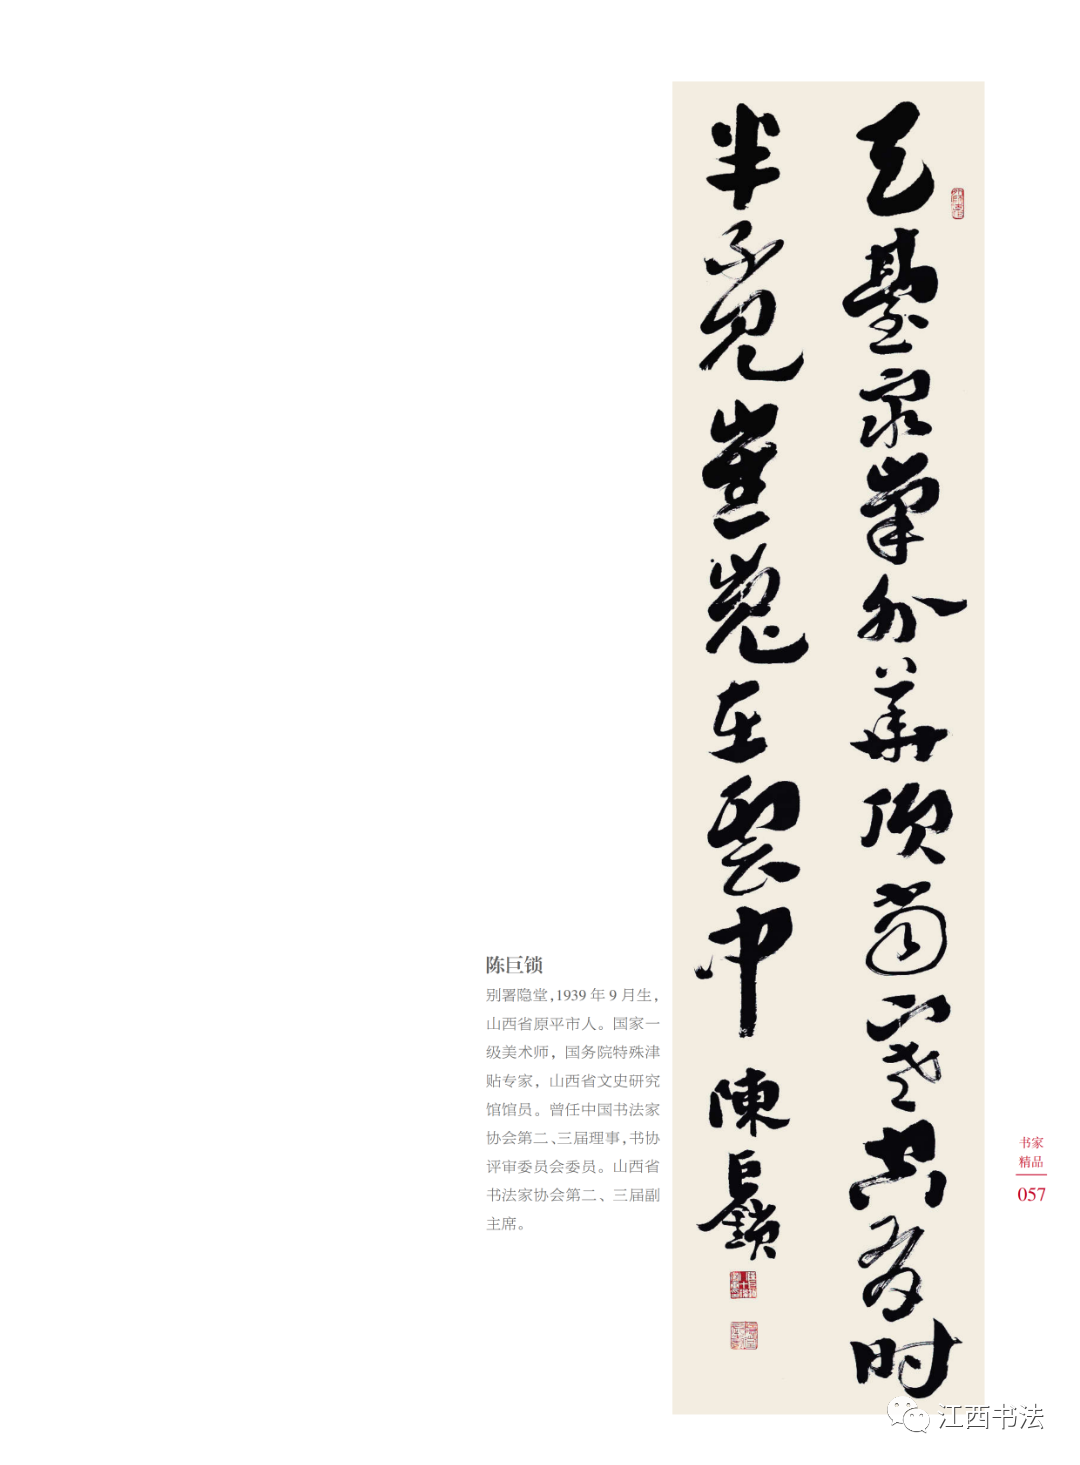 天臺眾峯外華頂當寒空有时
半不見崔嵬在雲中
陳巨鎖
陈巨锁
别署隐堂，1939 年 9 月生，
山西省原平市人。国家一
级美术师，国务院特殊津
贴专家，山西省文史研究
馆馆员。曾任中国书法家
协会第二、三届理事，书协
评审委员会委员。山西省
书法家协会第二、三届副
主席。
书家
精品
057
江西书法